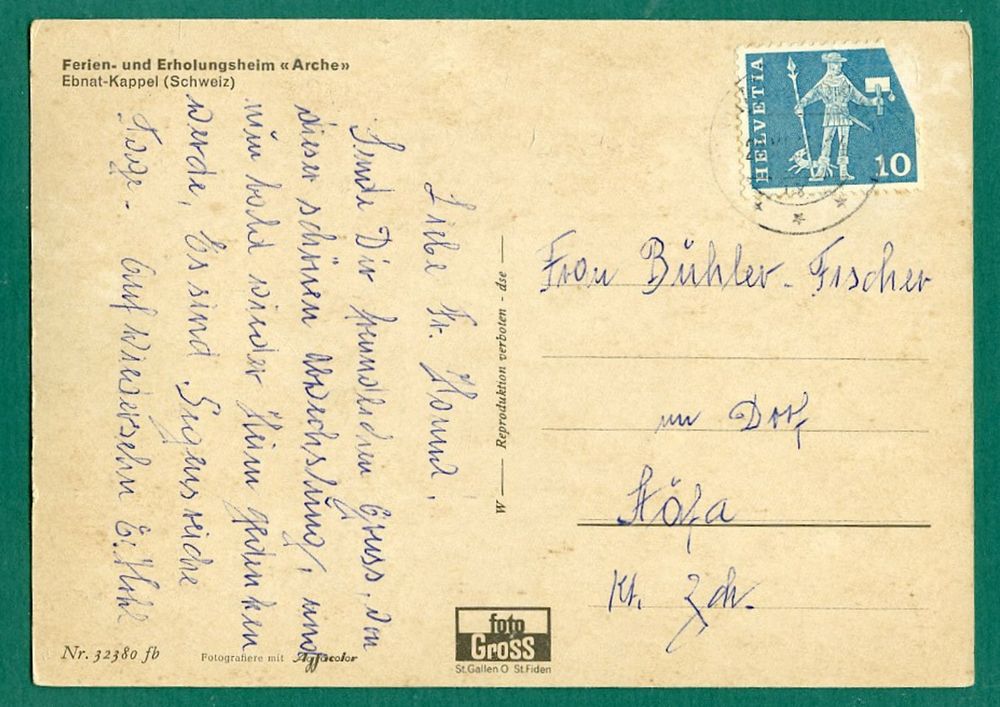 Ferien- und Erholungsheim «Arche»
Ebnat-Kappel (Schweiz)
HELVETIA
10
Liebe Fr. Hanni,
Sende Dir freundlichen Gruss, von
dieser schönen Abwechslung, und
nun bald wieder Heim gedenken
werde, Es sind Segensreiche
Tage- Auf Wiedersehn E. Hohl
W — Reproduktion verboten - dse —
Frau Bühler-Fischer
im Dorf
Stäfa
Kt. Zch.
Nr. 32380 fb
Fotografiere mit Agfacolor
foto
Gross
St.Gallen O St.Fiden